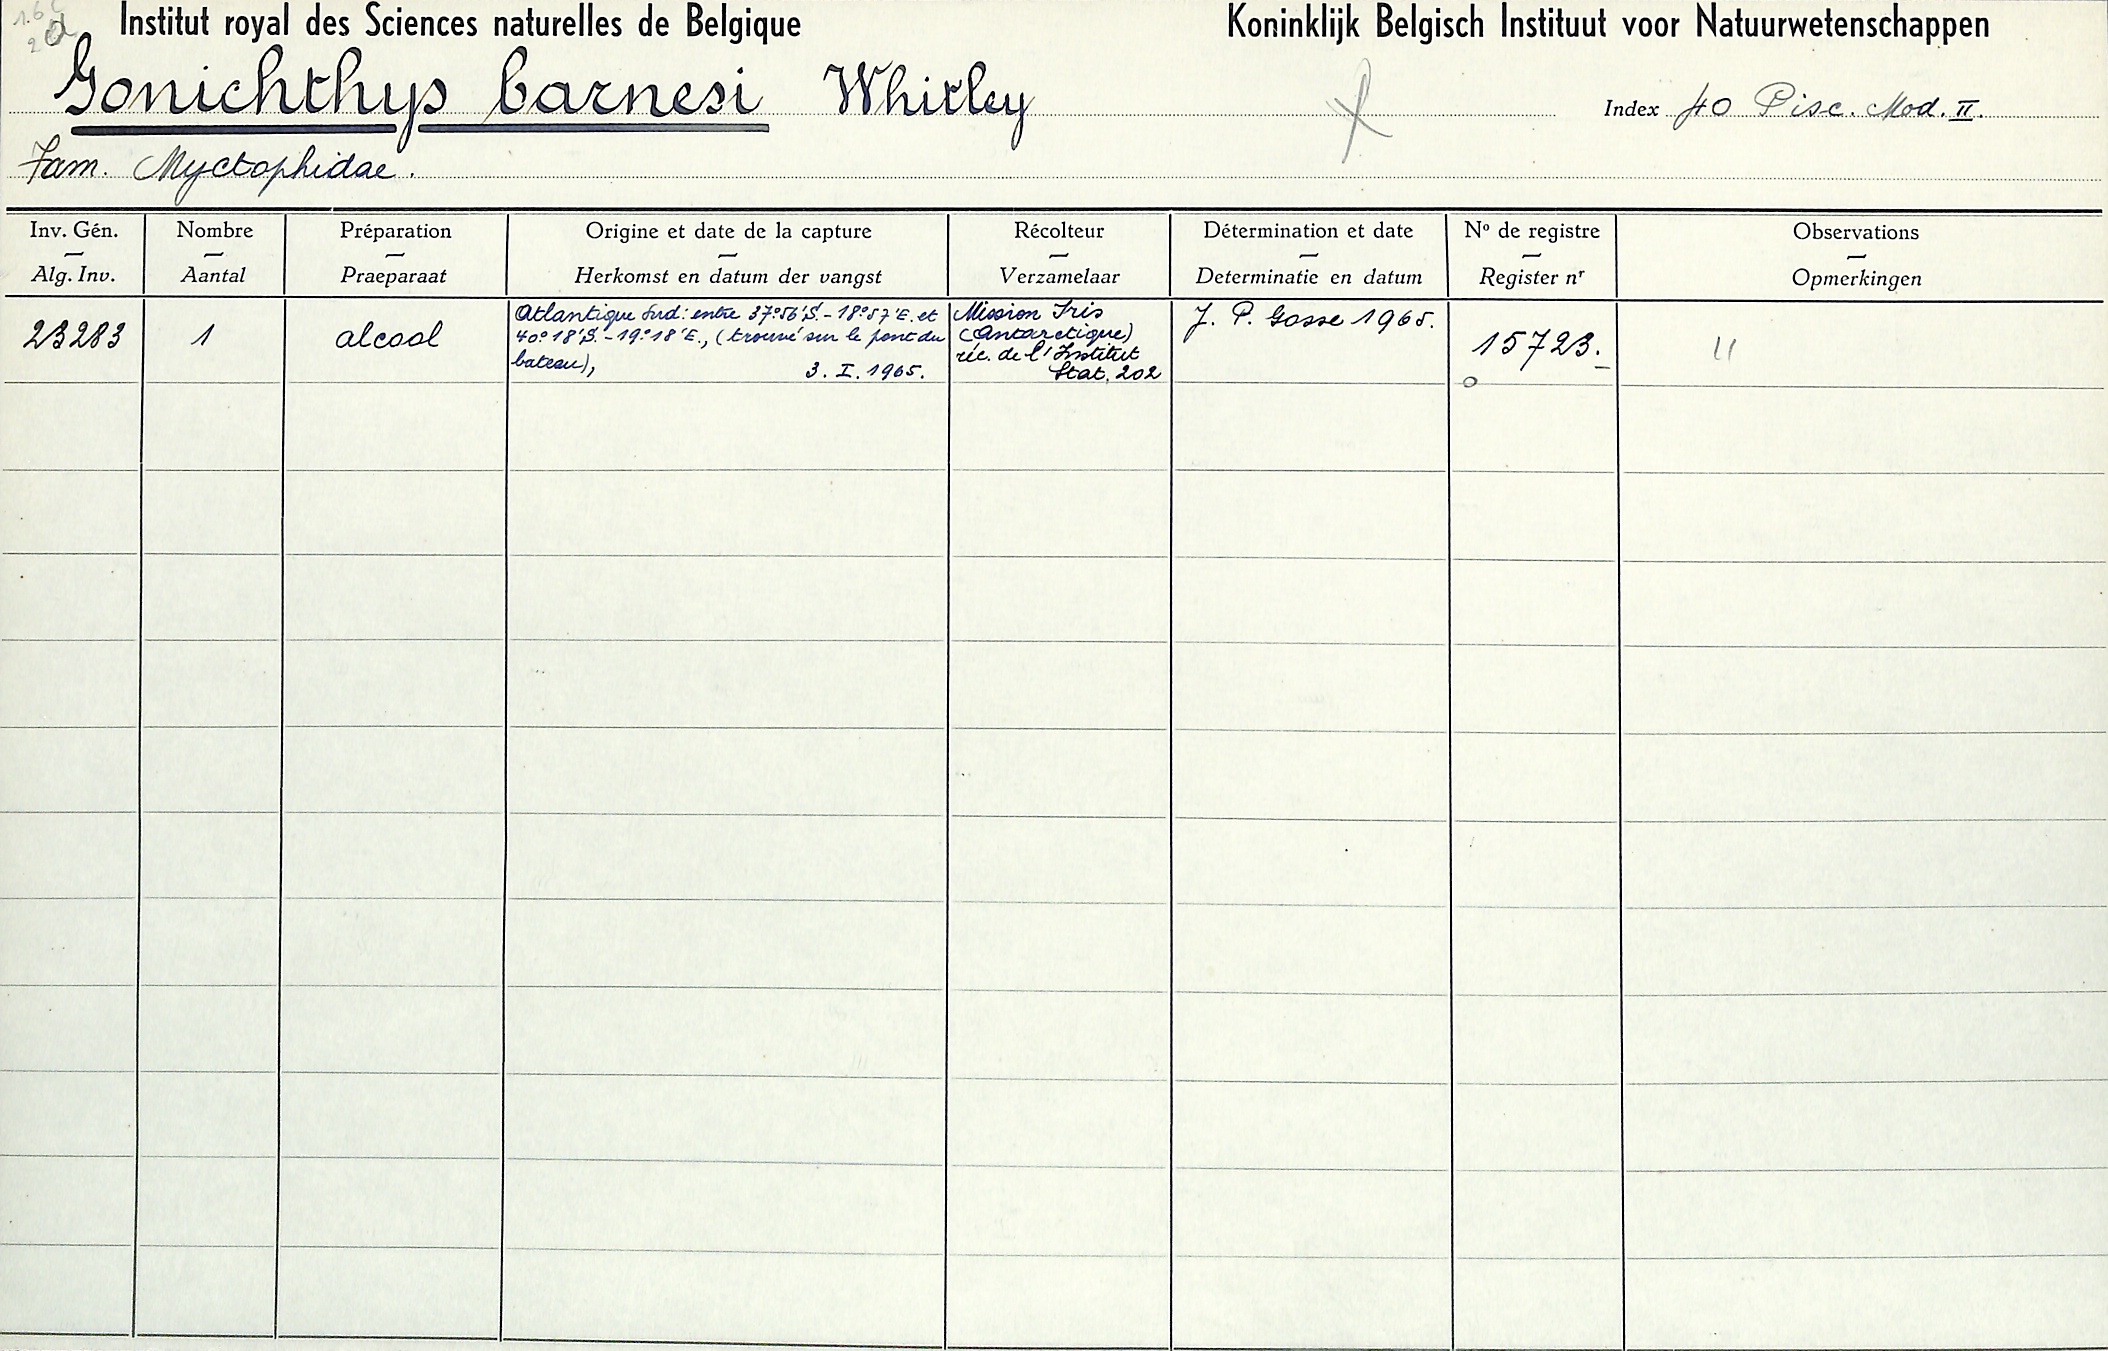 Institut royal des Sciences naturelles de Belgique
Koninklijk Belgisch Instituut voor Natuurwetenschappen
Gonichthys barnesi Whitley
Index 40 Pisc. Mod. II.
Fam. Myctophidae.
Inv. Gén. Nombre Préparation Origine et date de la capture Récolteur Détermination et date Nº de registre Observations
Alg. Inv. Aantal Praeparaat Herkomst en datum der vangst Verzamelaar Determinatie en datum Register nr Opmerkingen
23283
1
alcool
Atlantique Sud: entre 37°56'S. - 18°57'E. et
40°18'S. - 19°18'E., (trouvé sur le pont du
bateau),
3. I. 1965.
Mission Iris
(Antarctique)
réc. de l'Institut
Stat. 202
J. P. Gosse 1965.
15723.